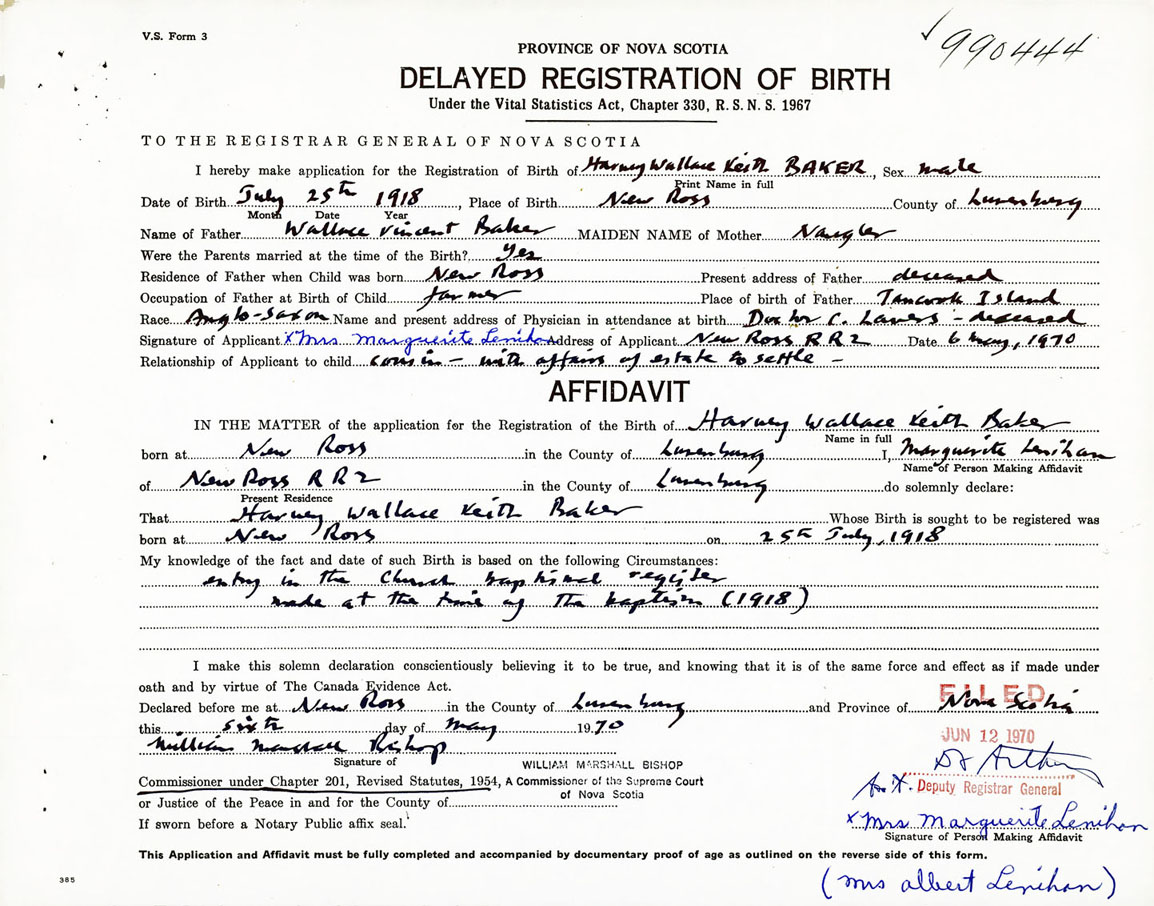 V.S. Form 3
990444
PROVINCE OF NOVA SCOTIA
DELAYED REGISTRATION OF BIRTH
Under the Vital Statistics Act, Chapter 330, R. S. N. S. 1967
TO THE REGISTRAR GENERAL OF NOVA SCOTIA
I hereby make application for the Registration of Birth of Harvey Wallace Keith BAKER, Sex male
Print Name in full
Date of Birth July 25th 1918, Place of Birth New Ross County of Lunenburg
Month Date Year
Name of Father Wallace Vincent Baker MAIDEN NAME of Mother Naugler
Were the Parents married at the time of the Birth? Yes
Residence of Father when Child was born New Ross Present address of Father deceased
Occupation of Father at Birth of Child farmer Place of birth of Father Tancook Island
Race Anglo-Saxon Name and present address of Physician in attendance at birth Doctor C. Lavers - deceased
Signature of Applicant x Mrs. Marguerite Lenihan Address of Applicant New Ross RR2 Date 6 May, 1970
Relationship of Applicant to child cousin - with affairs of estate to settle -
AFFIDAVIT
IN THE MATTER of the application for the Registration of the Birth of Harvey Wallace Keith Baker
Name in full
born at New Ross in the County of Lunenburg I, Marguerite Lenihan
Name of Person Making Affidavit
of New Ross RR2 in the County of Lunenburg do solemnly declare:
Present Residence
That Harvey Wallace Keith Baker Whose Birth is sought to be registered was
born at New Ross on 25th July, 1918
My knowledge of the fact and date of such Birth is based on the following Circumstances:
entry in the Church baptismal register
made at the time of the baptism (1918)
I make this solemn declaration conscientiously believing it to be true, and knowing that it is of the same force and effect as if made under
oath and by virtue of The Canada Evidence Act.
FILED
Declared before me at New Ross in the County of Lunenburg and Province of Nova Scotia
this sixth day of May 1970
JUN 12 1970
William Marshall Bishop
Signature of
WILLIAM MARSHALL BISHOP
Commissioner under Chapter 201, Revised Statutes, 1954, A Commissioner of the Supreme Court
of Nova Scotia
Deputy Registrar General
or Justice of the Peace in and for the County of
x Mrs Marguerite Lenihan
If sworn before a Notary Public affix seal.
Signature of Person Making Affidavit
This Application and Affidavit must be fully completed and accompanied by documentary proof of age as outlined on the reverse side of this form.
(Mrs Albert Lenihan)
385